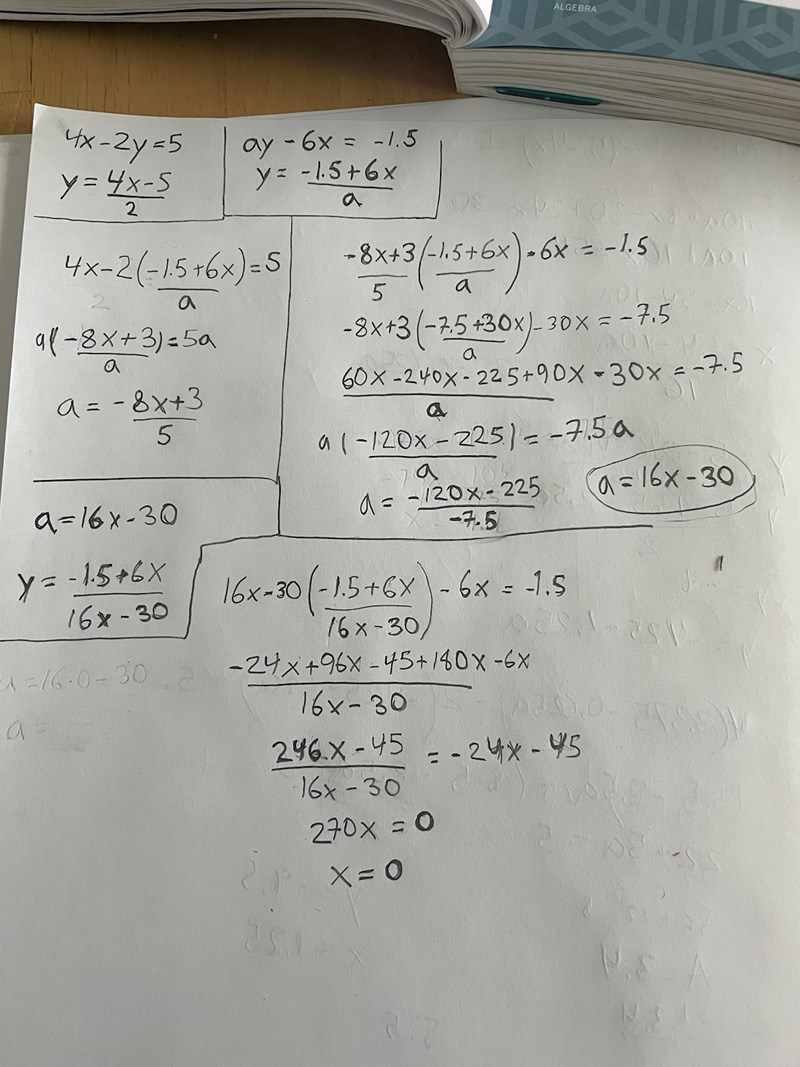 ALGEBRA
4x-2y=5
y=4x-5/2
ay-6x= -1.5
y= -1.5+6x/a
4x-2(-1.5+6x/a)=5
a(-8x+3/a)=5a
a= -8x+3/5
-8x+3/5(-1.5+6x/a)-6x = -1.5
-8x+3(-7.5+30x/a)-30x = -7.5
60x-240x-225+90x-30x/a = -7.5
a(-120x-225/a)= -7.5a
a= -120x-225/-7.5
a=16x-30
a=16x-30
y= -1.5+6x/16x-30
16x-30(-1.5+6x/16x-30)-6x = -1.5
-24x+96x-45+180x-6x/16x-30
246x-45/16x-30 = -24x-45
270x=0
x=0
a=16·0-30
a=